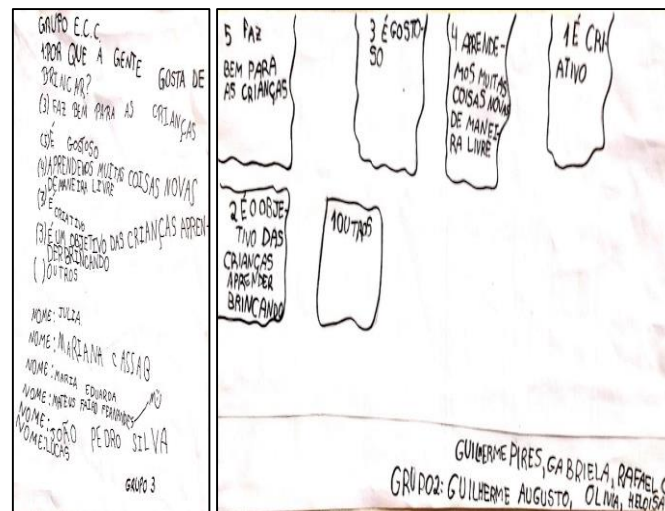 GRUPO E.C.C
1 POR QUE A GENTE GOSTA DE
BRINCAR?
(3) FAZ BEM PARA AS CRIANÇAS
GOSTOSO
APRENDEMOS MUITAS COISAS NOVAS
DE MANEIRA LIVRE
É
CRIATIVO
(3) É UM OBJETIVO DAS CRIANÇAS APREN-
DER BRINCANDO
( ) OUTROS
NOME: JULIA
NOME: MARIANA
NOME: MARIA EDUARDA
NOME: MATEUS FERNANDES
NOME: JOÃO PEDRO SILVA
NOME: LUCAS
GRUPO 3
5 FAZ
BEM PARA
AS CRIANÇAS
3 É GOSTO-
SO
4 APRENDE-
MOS MUITAS
COISAS NOVAS
DE MANEI-
RA LIVRE
1 É CRI-
ATIVO
2 É O OBJE-
TIVO DAS
CRIANÇAS
APRENDER
BRINCANDO
1 OUTROS
GUILHERME PIRES, GABRIELA, RAFAEL
GRUPO 2: GUILHERME AUGUSTO, OLIVIA, HELOISA